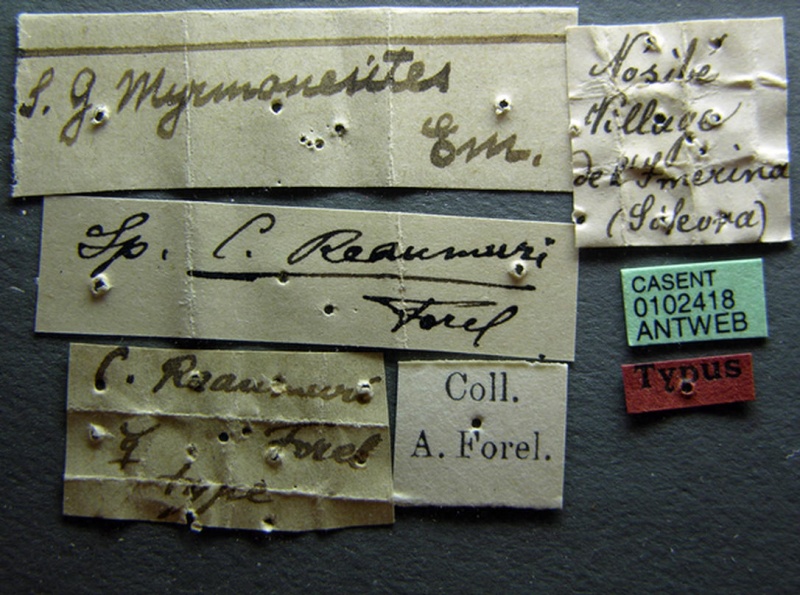 S. G. Myrmonesites
Em.
Nosibé
Village
de l'Imerina
(Sikora)
Sp. C. Reaumuri
Forel
CASENT
0102418
ANTWEB
Typus
C. Reaumuri
☿ Forel
type
Coll.
A. Forel.